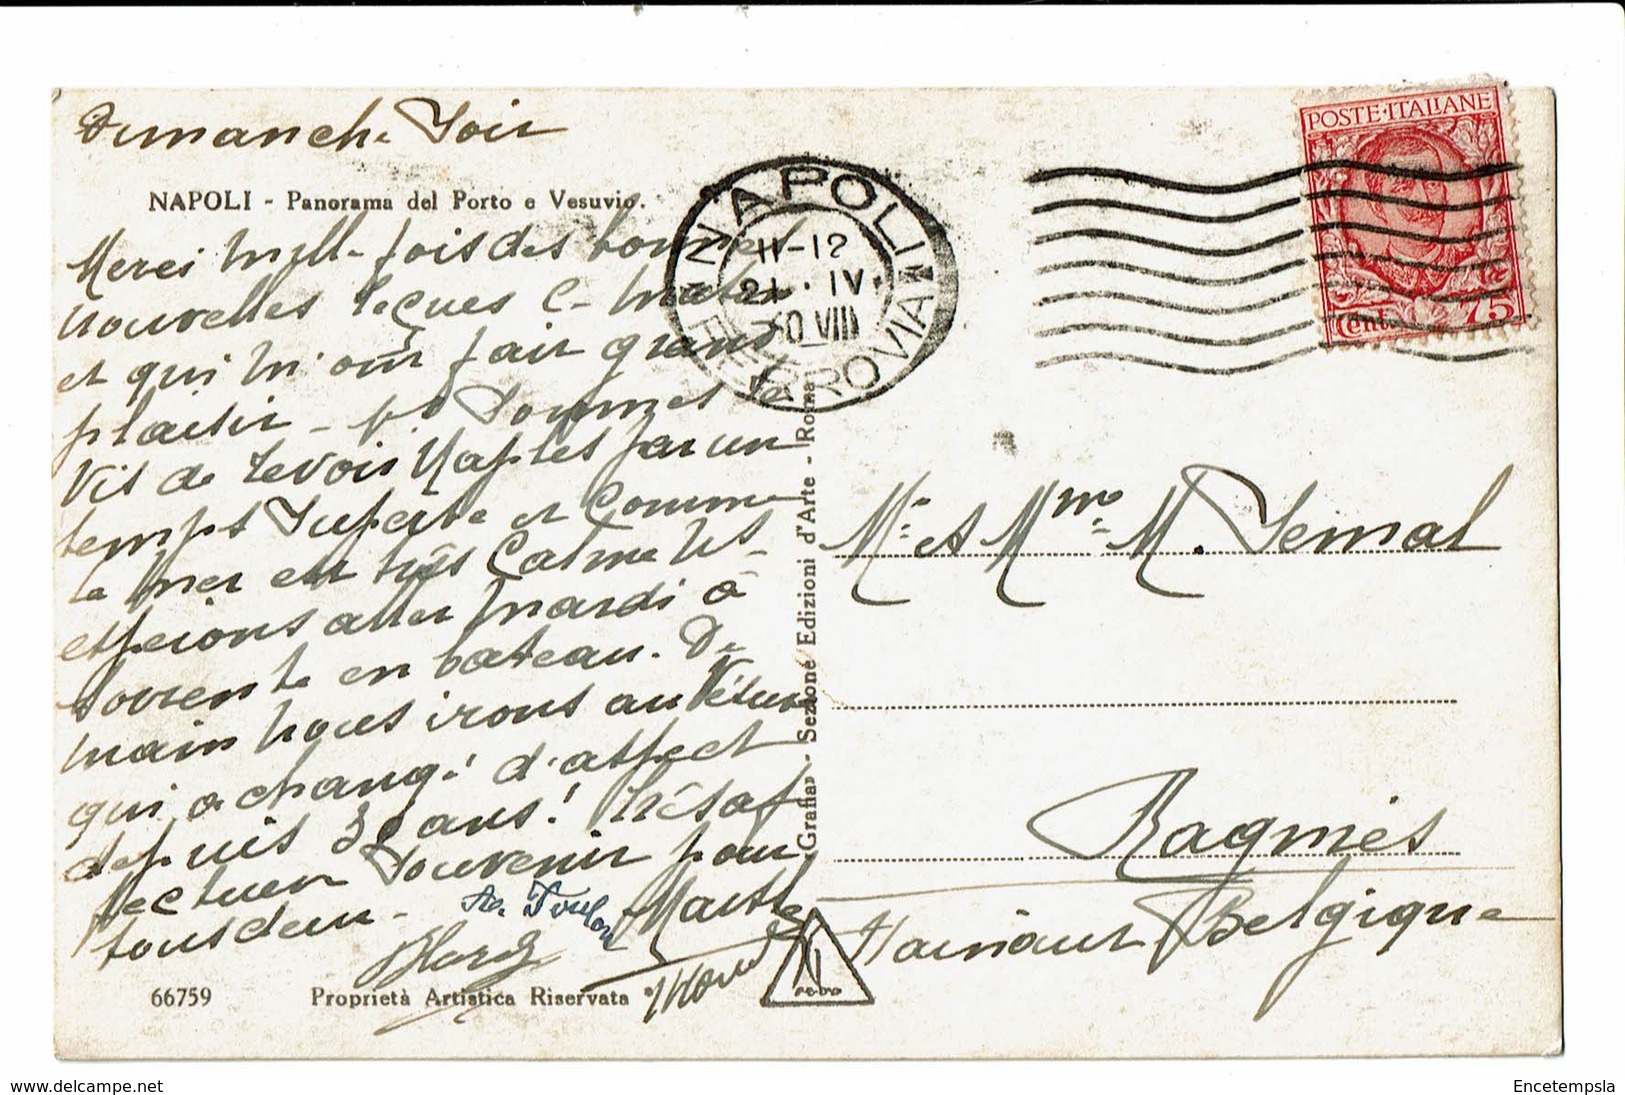 Dimanche Soir
NAPOLI - Panorama del Porto e Vesuvio.
Merci mille fois des bonnes
nouvelles reçues ce matin
et qui m'ont fait grand
plaisir - Ns sommes
de revoir Naples par un
temps superbe et comme
la mer est très calme ns
espérons aller mardi à
Sorrente en bateau. De
main nous irons au Vésuve
qui a changé d'aspect
depuis 30 ans! très af
fectueux souvenir pour
tous deux - Marthe
66759
Proprietà Artistica Riservata
Grafia - Sezione Edizioni d'Arte - Roma
NAPOLI
11-12
21 · IV
VIII
FERROVIA
POSTE·ITALIANE
Cent 75
Mr et Mme M. Semal
Ragnies
Hainaut Belgique
www.delcampe.net
Encetempsla